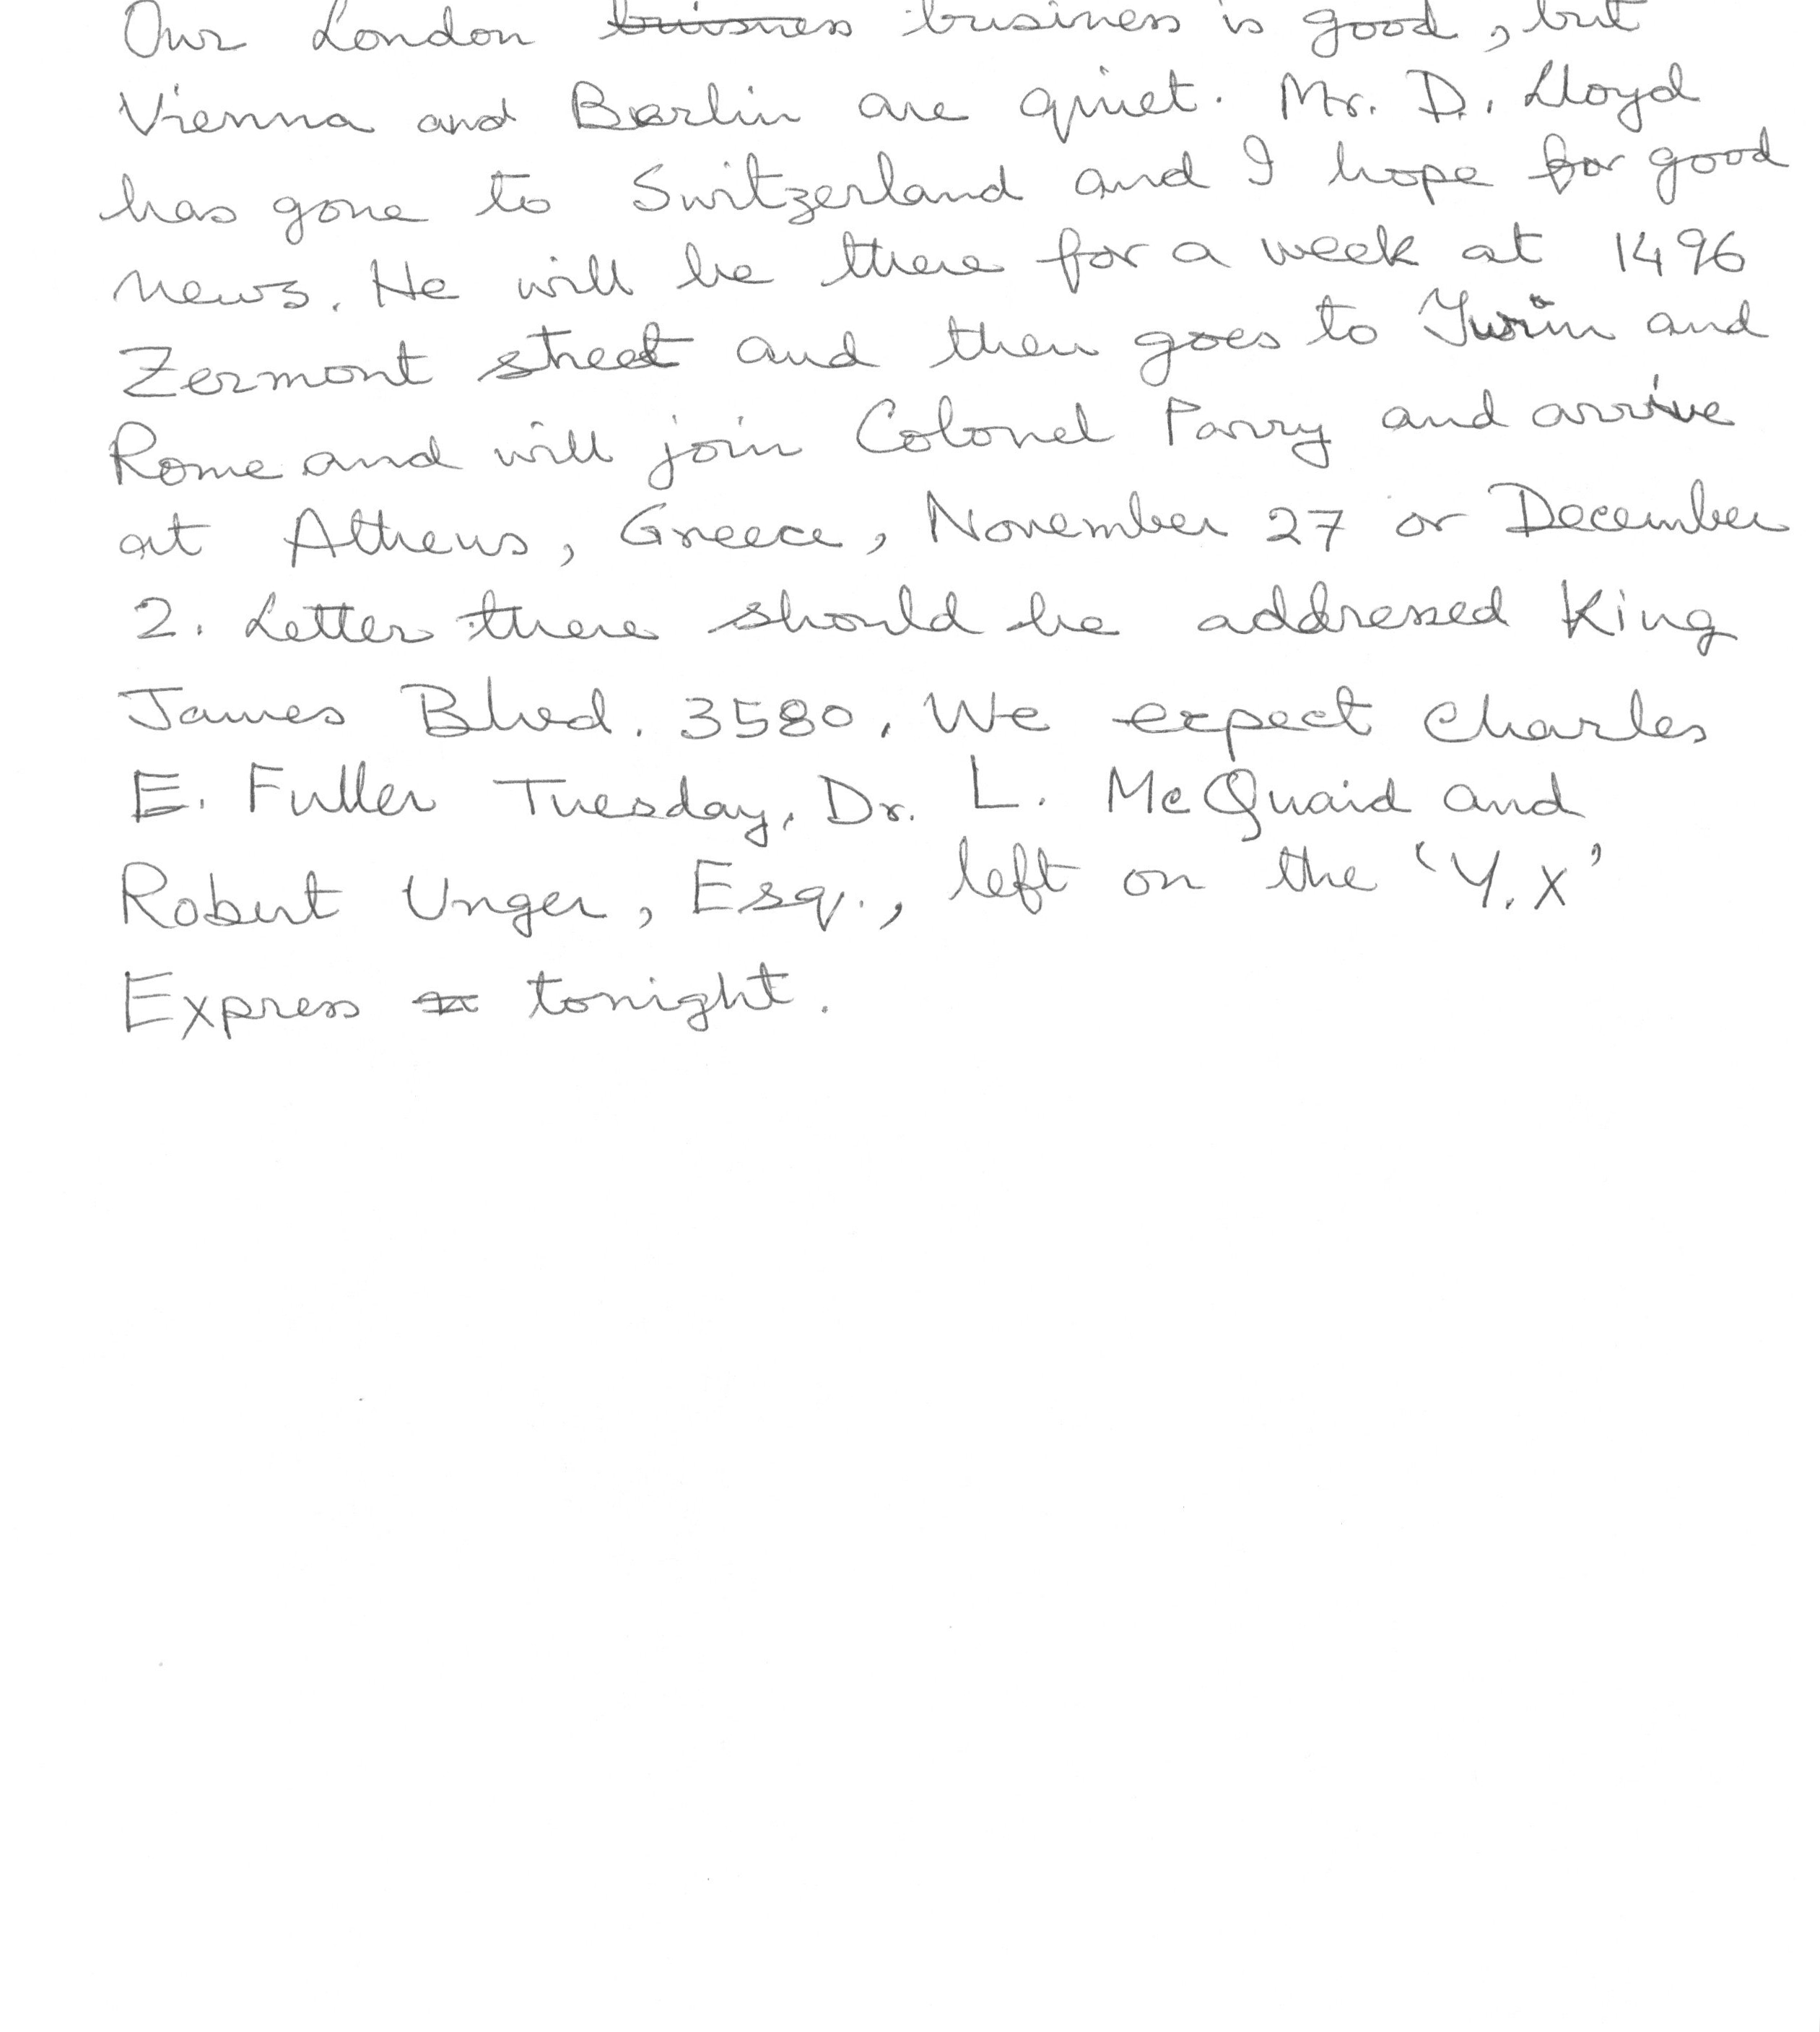 Our London business is good, but
Vienna and Berlin are quiet. Mr. D. Lloyd
has gone to Switzerland and I hope for good
news. He will be there for a week at 1496
Zermont street and then goes to Turin and
Rome and will join Colonel Parry and arrive
at Athens, Greece, November 27 or December
2. Letter there should be addressed King
James Blvd. 3580. We expect Charles
E. Fuller Tuesday. Dr. L. McQuaid and
Robert Unger, Esq., left on the 'Y.X'
Express tonight.